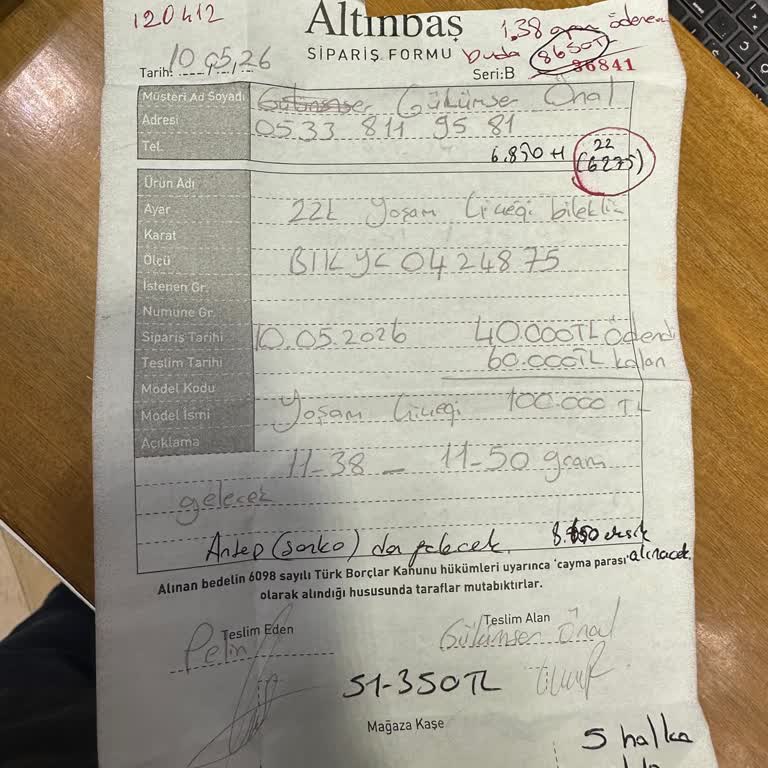 120412
Altınbaş
1,38 gram ödenen
SİPARİŞ FORMU
buda 8650TL
Tarih: 10/05/26
Seri:B 36841
Müşteri Ad Soyadı Gülümser Önal
Adresi 0533 811 95 81
Tel.
6.850 22 (6275)
Ürün Adı
Ayar 22k Yaşam Çiçeği bileklik
Karat
Ölçü BILKYC0424875
İstenen Gr.
Numune Gr.
Sipariş Tarihi 10.05.2026 40.000TL ödendi
Teslim Tarihi 60.000TL kalan
Model Kodu
Model İsmi Yaşam Çiçeği 100.000 TL
Açıklama
11-38 - 11-50 gram
gelecek
Antep (sanko) da gelecek. 8.650 eksik
alınacak.
Alınan bedelin 6098 sayılı Türk Borçlar Kanunu hükümleri uyarınca 'cayma parası'
olarak alındığı hususunda taraflar mutabıktırlar.
Teslim Eden
Teslim Alan
Pelin
Gülümser Önal
51-350TL
Mağaza Kaşe
5 halka